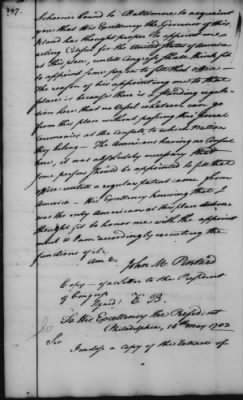 297.
Schooner bound to Baltimore to acquaint
you that His Excellency the Governor of this
Island has thought proper to appoint me
acting Consul for the United States of America
at this place, until Congress shall think fit
to appoint some person to fill that office—
The reason of his appointing me to that
place is because there is a standing regula-
tion here that no vessel whatever can go
from this place without passing thro' several
ceremonies at the Consuls to which Nation
they belong— The Americans having no Consul
here, it was absolutely necessary that
some person should be appointed to fill that
office until a regular patent came from
America— His Excellency knowing that I
was the only American at this place
thought fit to honor me with the appoint
ment & I am accordingly executing the
functions of it.
Am &c
John M.
Copy— of a Letter to the President
of Congress
signd: E. B.
To His Excellency the President
Philadelphia, 15th May 1783
Sir
I enclose a Copy of the Extracts of